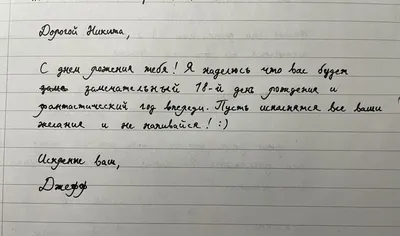 Дорогой Никита,
С днем рожения тебя! Я надеюсь что вас будет
замечательный 18-й день рождения и
фантастический год впереди. Пусть исполнятся все ваши
желания и не напивайся! :)
Искренне ваш,
Джефф